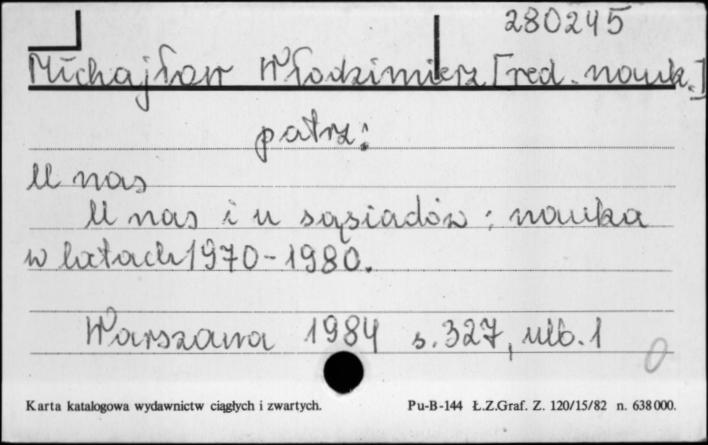 280245
Michajłow Włodzimierz [red. nauk.]
patrz:
U nas
U nas i u sąsiadów : nauka
w latach 1970-1980.
Warszawa 1984 s. 327, ulb. 1
0
Karta katalogowa wydawnictw ciągłych i zwartych. Pu-B-144 Ł.Z.Graf. Z. 120/15/82 n. 638000.